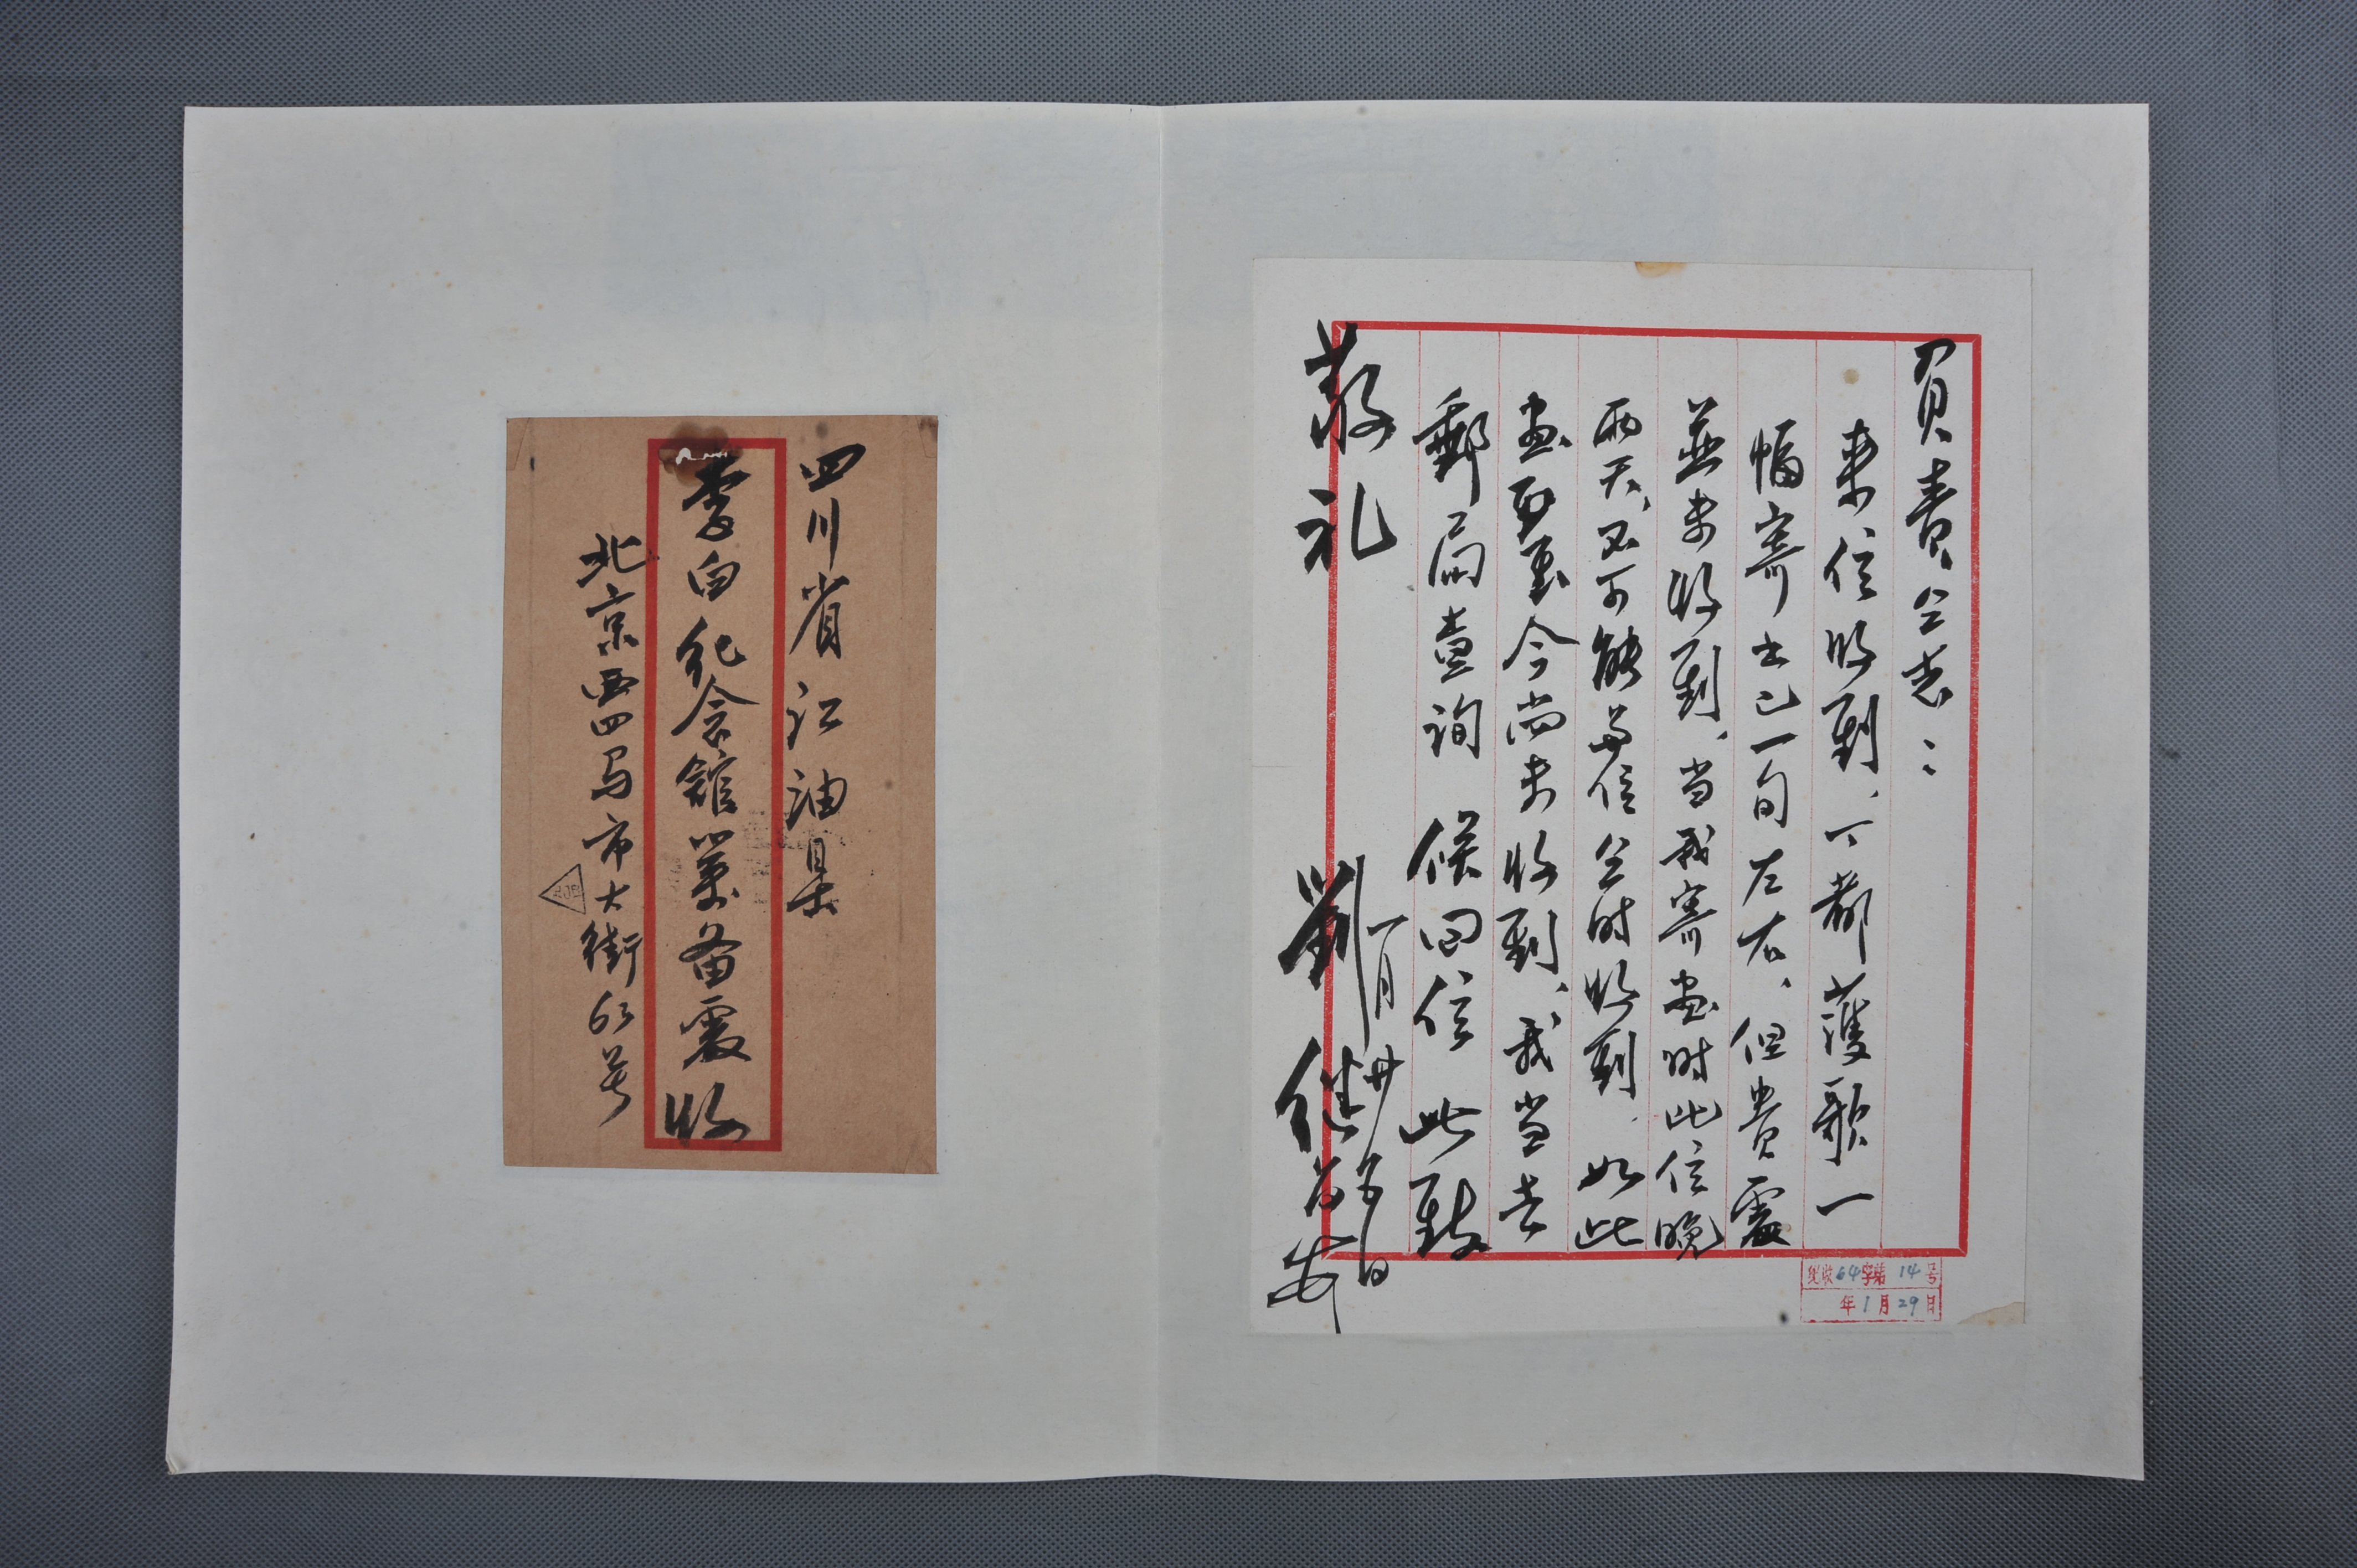 負責仝志：
来信收到，丁都護歌一
幅寄出已一旬左右，但貴處
並未收到，当我寄画时此信晚
两天，不可能与信仝时收到，如此
画至今尚未收到，我当去
郵局查询 候回信 此致
敬礼
劉继卣
一月廿日
收64字第14号
年1月29日
四川省江油县
李白纪念館筹备處收
北京西四马市大街63号